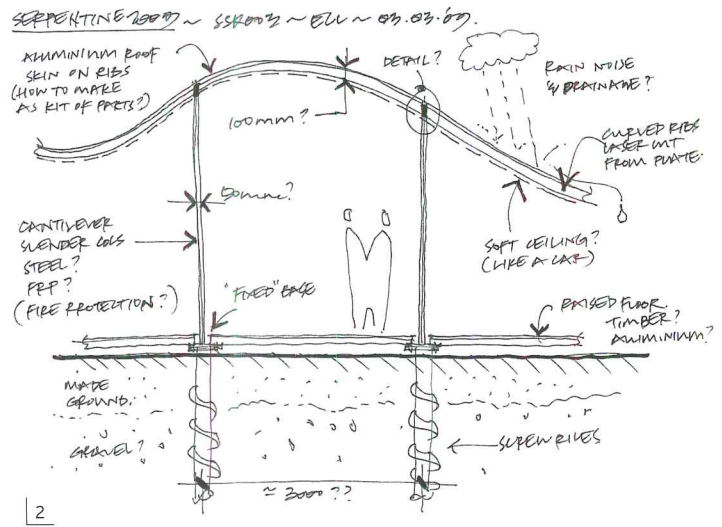 SERPENTINE 2009 ~ SSK003 ~ ELL ~ 03.03.09.
ALUMINIUM ROOF
SKIN ON RIBS
(HOW TO MAKE
AS KIT OF PARTS?)
100mm?
DETAIL?
RAIN NOISE
& DRAINAGE?
CURVED RIBS
LASER CUT
FROM PLATE.
50mm?
CANTILEVER
SLENDER COLS
STEEL?
FRP?
(FIRE PROTECTION?)
"FIXED" BASE
SOFT CEILING?
(LIKE A CAR)
RAISED FLOOR.
TIMBER?
ALUMINIUM?
MADE
GROUND.
GRAVEL?
SCREW PILES
≈ 3000??
2